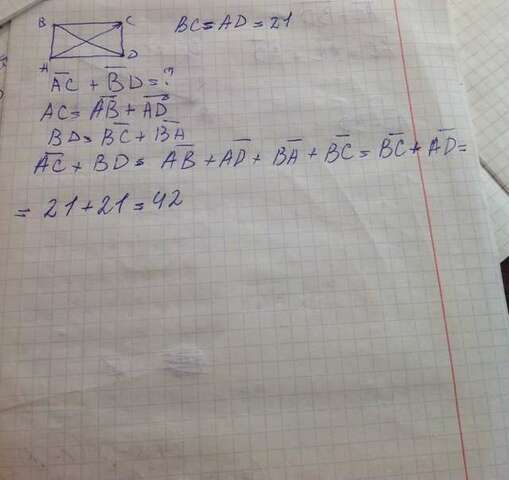 B C BC = AD = 21
A D
A̅C̅ + B̅D = ?
AC = A̅B̅ + A̅D̅
BD = B̅C̅ + B̅A̅
A̅C̅ + BD = A̅B̅ + A̅D̅ + B̅A̅ + B̅C̅ = B̅C̅ + A̅D̅ =
= 21 + 21 = 42